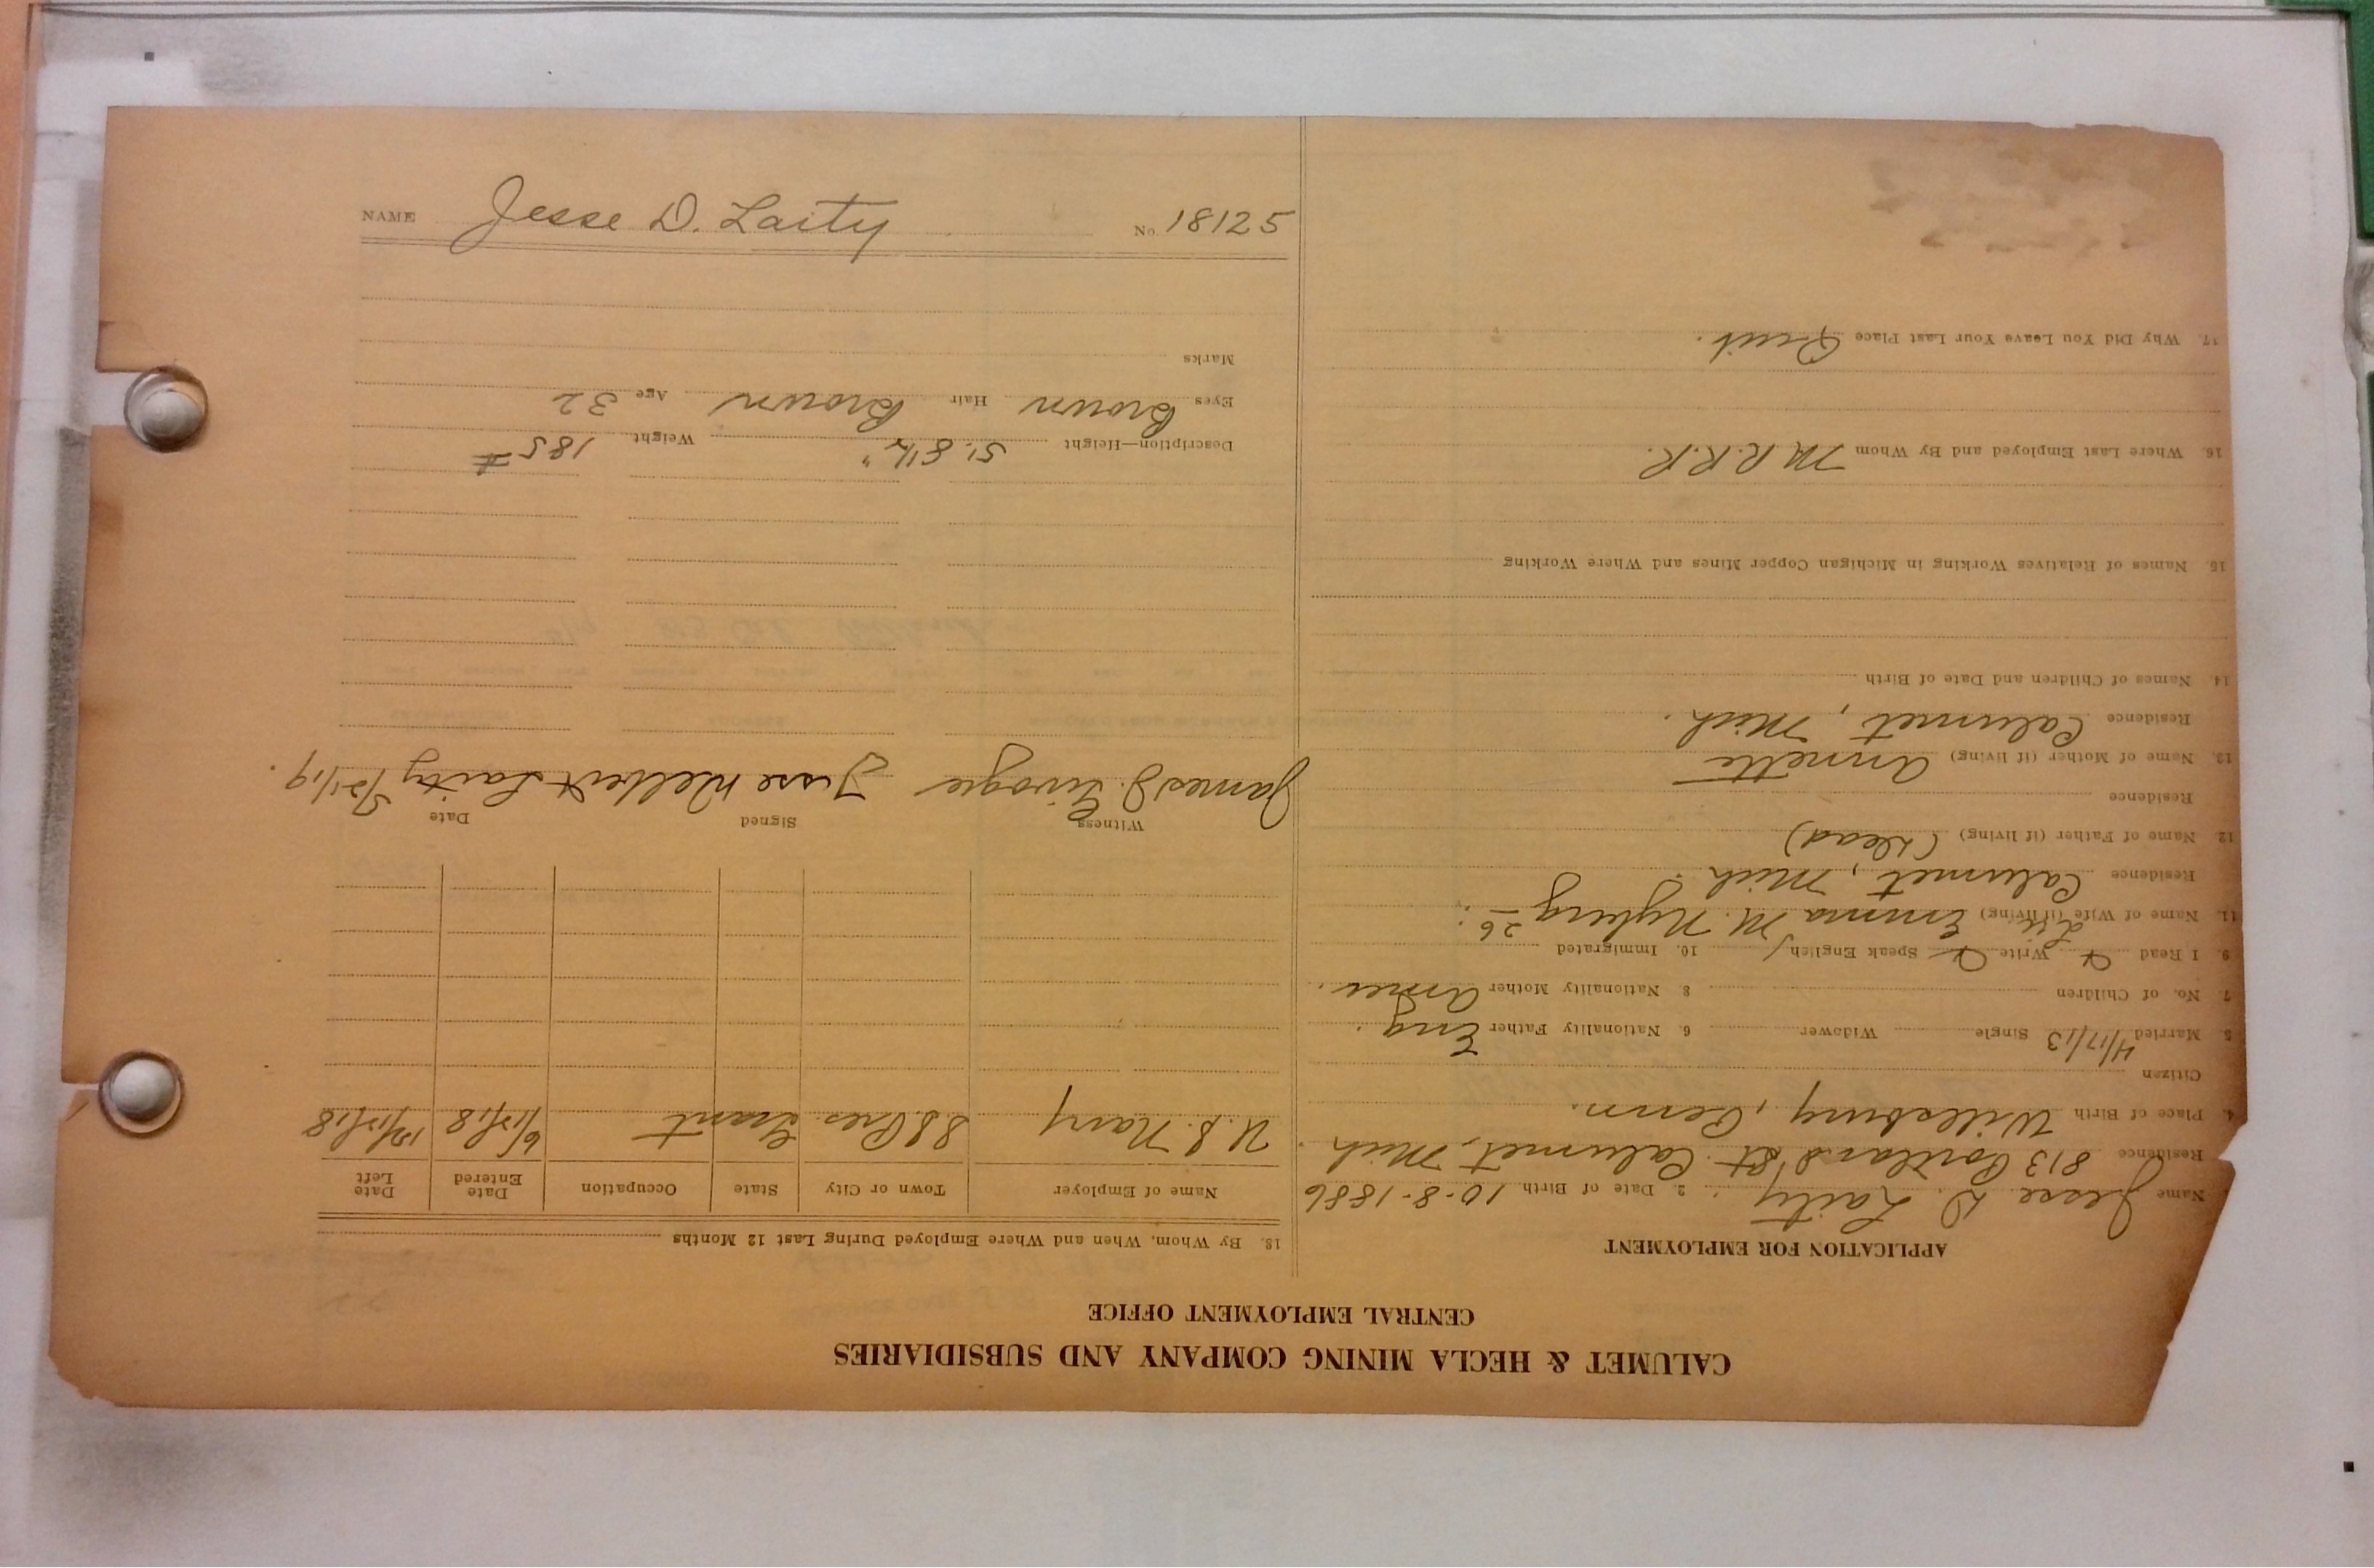 CALUMET & HECLA MINING COMPANY AND SUBSIDIARIES
CENTRAL EMPLOYMENT OFFICE
APPLICATION FOR EMPLOYMENT
Name Jesse D. Laity 2. Date of Birth 10-8-1886
Residence 813 Portland St. Calumet, Mich.
4. Place of Birth Willsburg, Penn.
Citizen
5 Married 4/17/13 Single Widower 6. Nationality Father Eng.
7. No. of Children 8 Nationality Mother Amer.
9. I Read Write Speak English / 10. Immigrated
11. Name of Wife (if living) Emma M. Nyberg 26
Residence Calumet, Mich.
12. Name of Father (if living) (Dead)
Residence
13. Name of Mother (if living) Annette
Residence Calumet, Mich.
14. Names of Children and Date of Birth
15. Names of Relatives Working in Michigan Copper Mines and Where Working
16. Where Last Employed and By Whom M R.R.R.
17. Why Did You Leave Your Last Place Quit.
18. By Whom, When and Where Employed During Last 12 Months
Name of Employer Town or City State Occupation Date Entered Date Left
U.S. Navy S.S. Pres. Grant
Witness Signed Date
James J. Jesse Delbert Laity
Description—Height 5'. 8 1/2" Weight 185 #
Eyes Brown Hair Brown Age 32
Marks
NAME Jesse D. Laity No. 18125